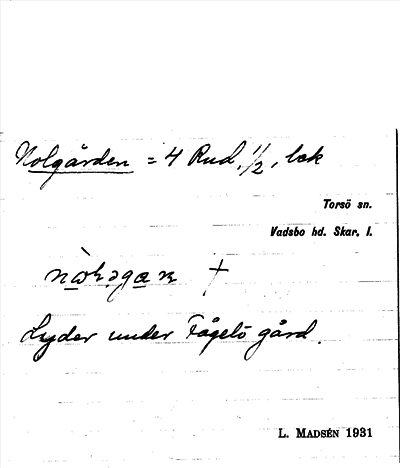 Nolgården = 4 Rud, 1/2, bok
Torsö sn.
Vadsbo hd. Skar. l.
Lyder under Fågelö gård.
L. MADSÉN 1931